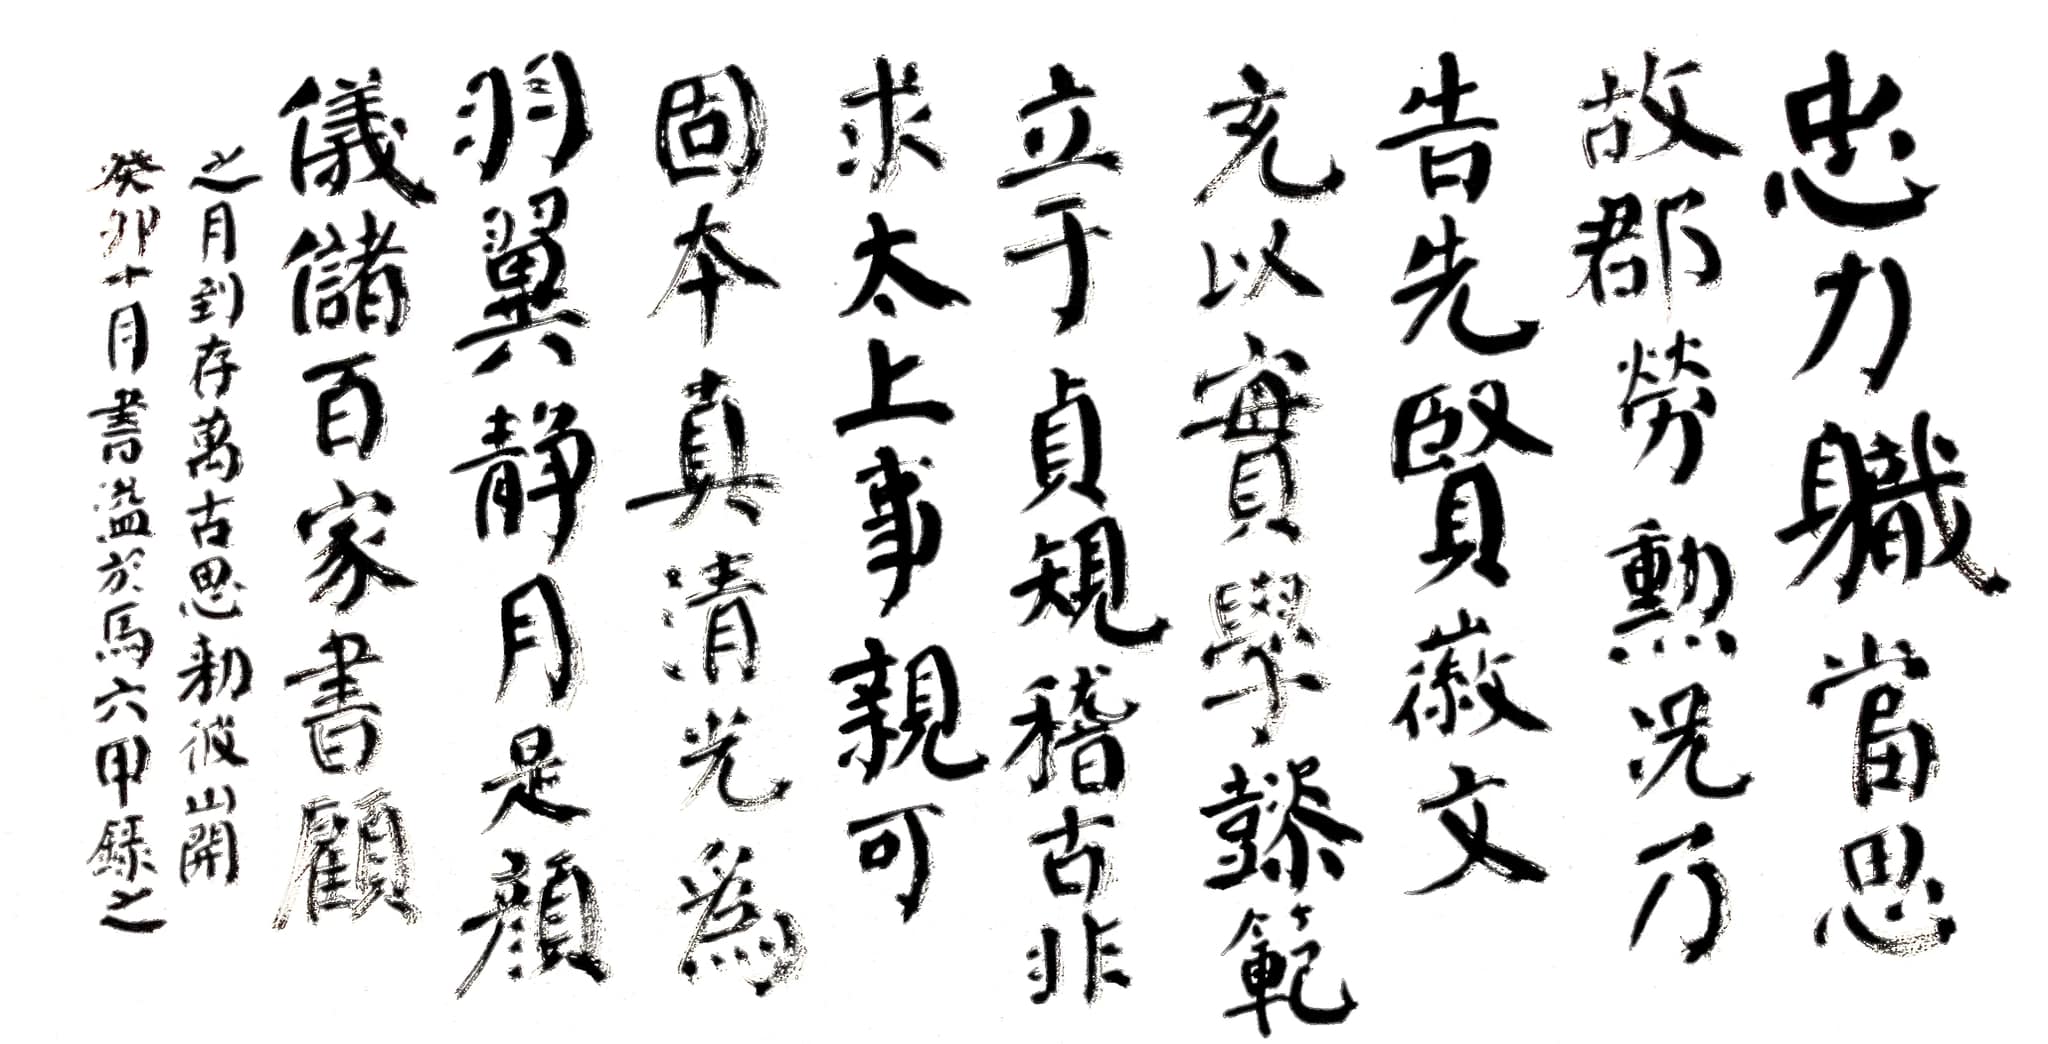 忠力職當思
故郡勞勲況乃
告先賢薇文
充以實學懿範
立于貞規稽古非
求太上事親可
固本真清光為
羽翼靜月是顔
儀儲百家書顧
之月到存萬古思勑彼山開
癸卯十月書溢於馬六甲錄之